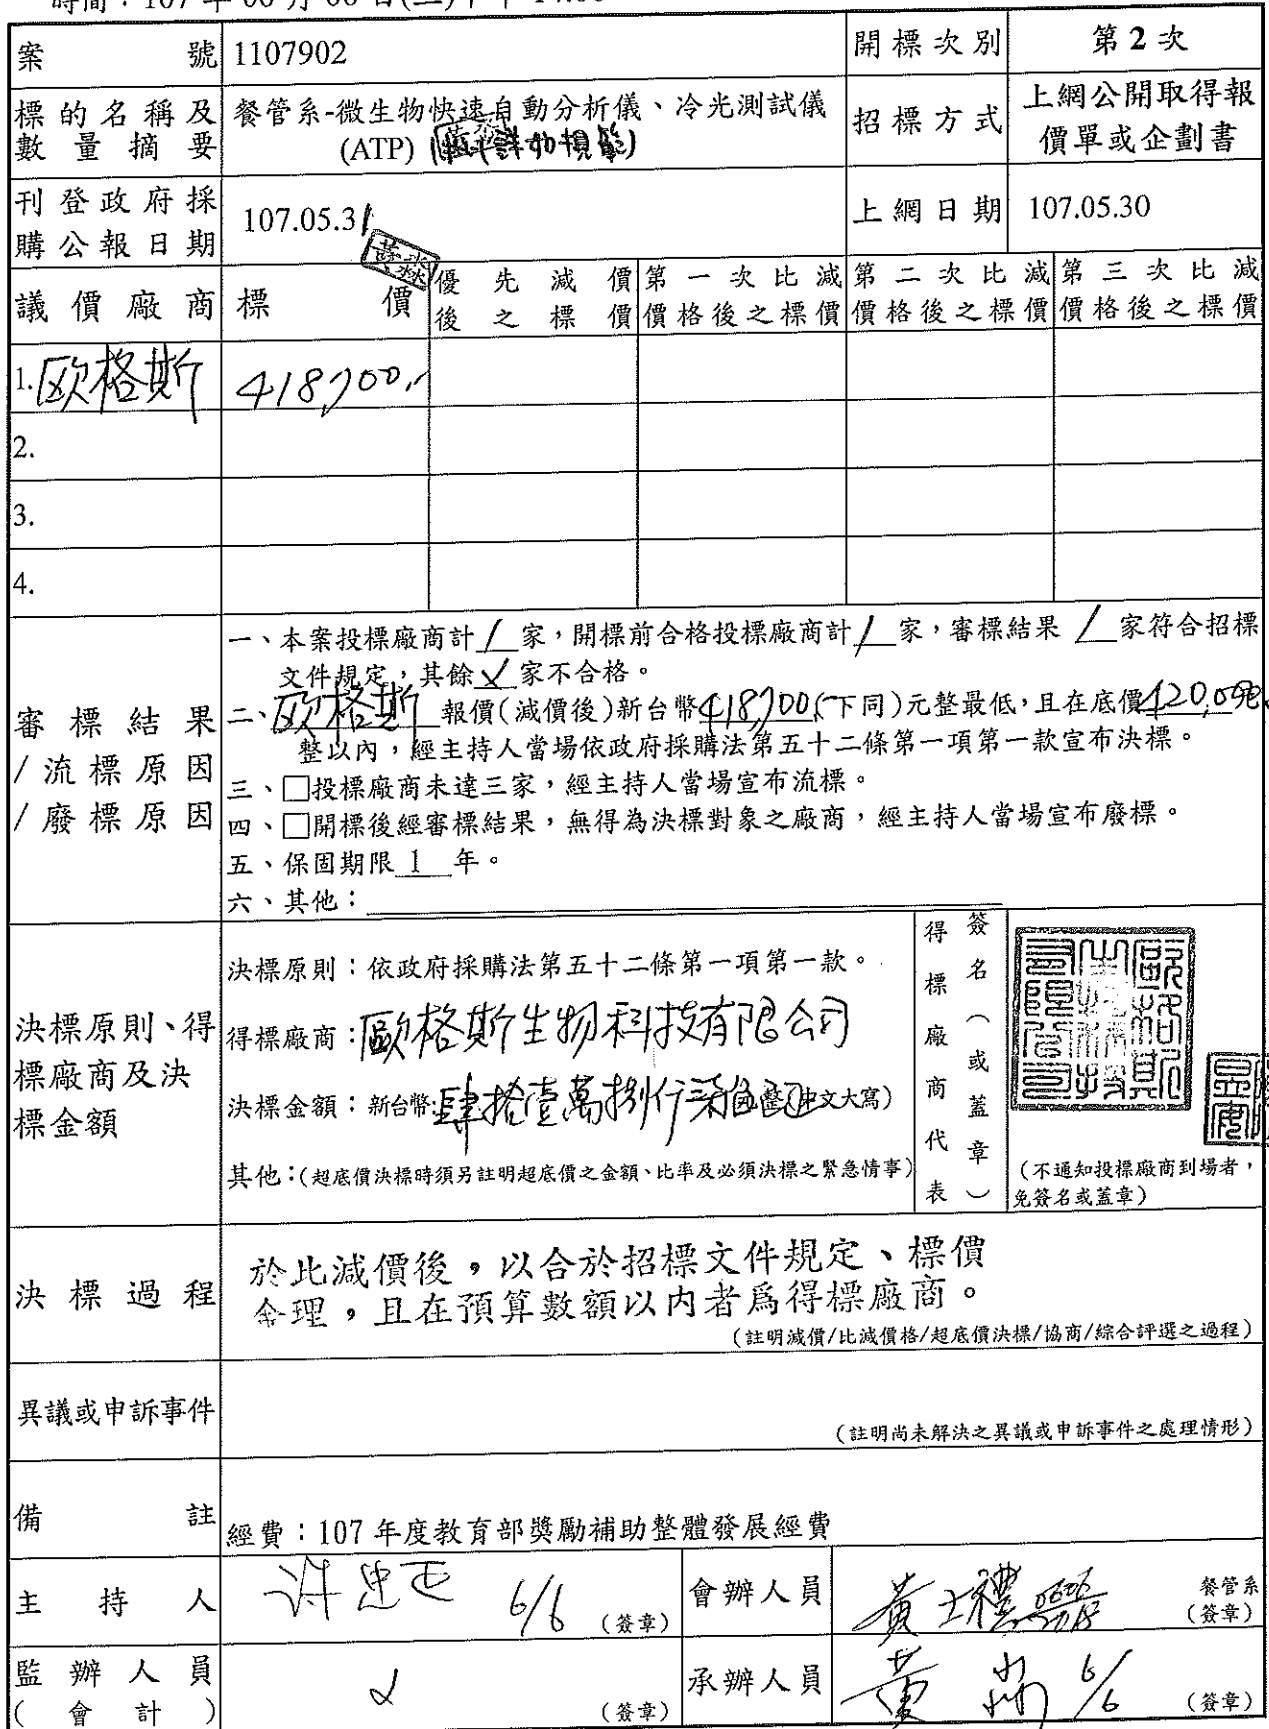 案號 1107902 開標次別 第 2 次
標的名稱及數量摘要 餐管系-微生物快速自動分析儀、冷光測試儀
(ATP)
招標方式 上網公開取得報
價單或企劃書
刊登政府採購公報日期 107.05.31 上網日期 107.05.30
議價廠商 標價 優先減價後之標價 第一次比減價格後之標價 第二次比減價格後之標價 第三次比減價格後之標價
1. 欧格斯 418,700.-
2.
3.
4.
審標結果
/流標原因
/廢標原因
一、本案投標廠商計 1 家,開標前合格投標廠商計 1 家,審標結果 1 家符合招標
文件規定,其餘 家不合格。
二、欧格斯 報價(減價後)新台幣 418,700 (下同)元整最低,且在底價 420,000元
整以內,經主持人當場依政府採購法第五十二條第一項第一款宣布決標。
三、□投標廠商未達三家,經主持人當場宣布流標。
四、□開標後經審標結果,無得為決標對象之廠商,經主持人當場宣布廢標。
五、保固期限 1 年。
六、其他:
決標原則、得
標廠商及決
標金額
決標原則:依政府採購法第五十二條第一項第一款。
得標廠商:歐格斯生物科技有限公司
決標金額:新台幣:肆拾壹萬捌仟柒佰 整(中文大寫)
其他:(超底價決標時須另註明超底價之金額、比率及必須決標之緊急情事)
得標廠商代表
簽名(或蓋章)
歐格斯生物科技有限公司
(不通知投標廠商到場者,
免簽名或蓋章)
決標過程
於比減價後,以合於招標文件規定、標價
合理,且在預算數額以內者為得標廠商。
(註明減價/比減價格/超底價決標/協商/綜合評選之過程)
異議或申訴事件
(註明尚未解決之異議或申訴事件之處理情形)
備註 經費:107 年度教育部獎勵補助整體發展經費
主持人 6/6 (簽章) 會辦人員 餐管系
(簽章)
監辦人員
(會計) (簽章) 承辦人員 黃 6/6 (簽章)